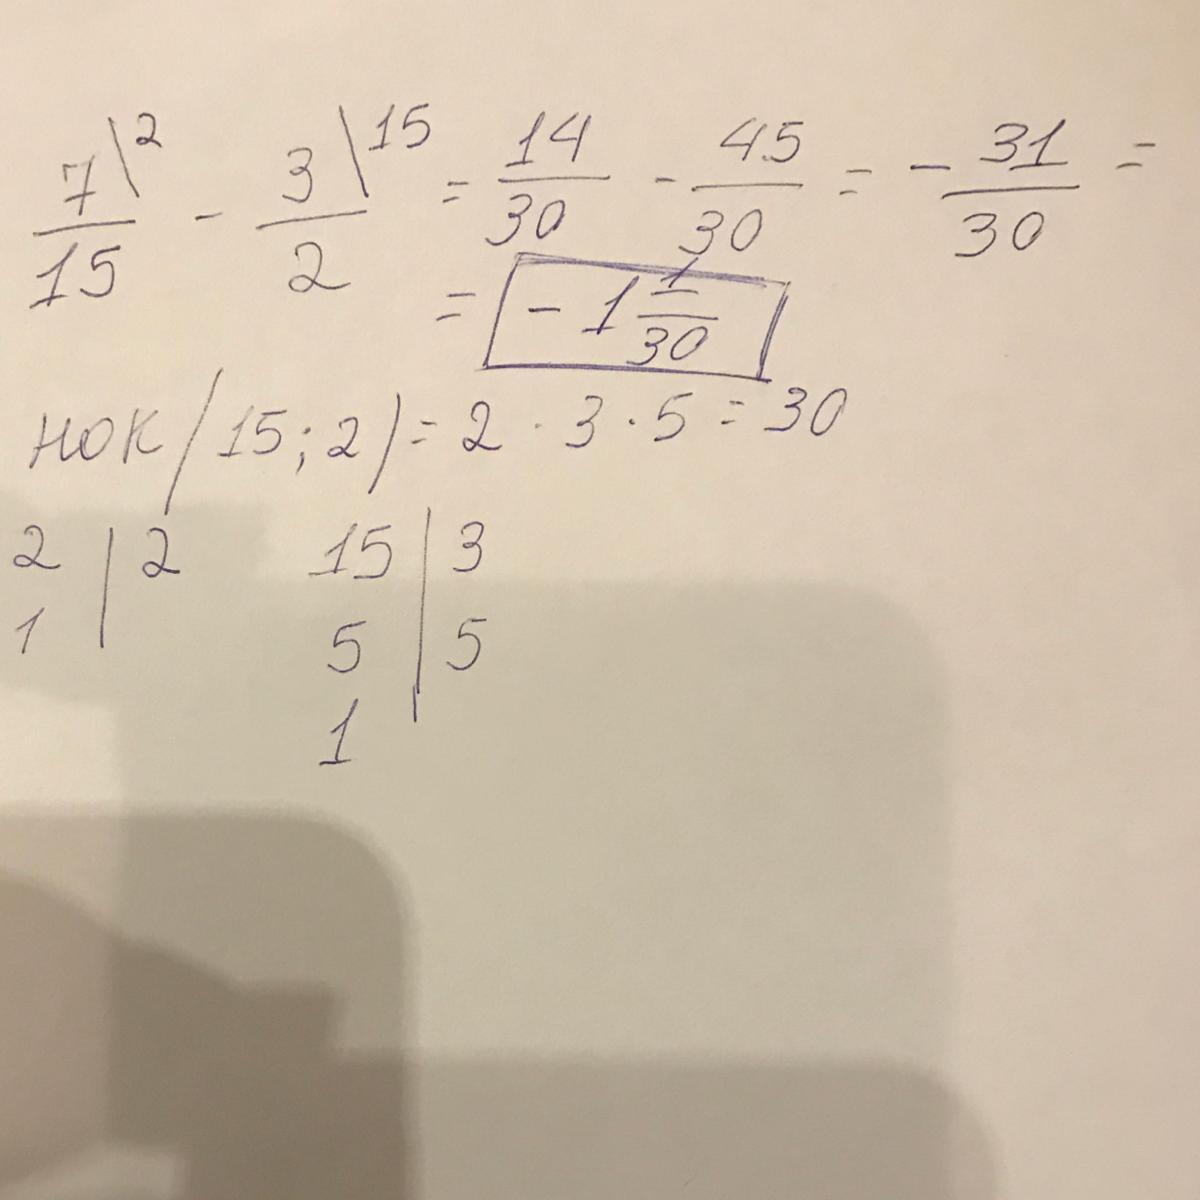 7\2/15 - 3\15/2 = 14/30 - 45/30 = - 31/30 =
= - 1 1/30
НОК (15; 2) = 2 · 3 · 5 = 30
2 | 2 15 | 3
1 | 5 | 5
1